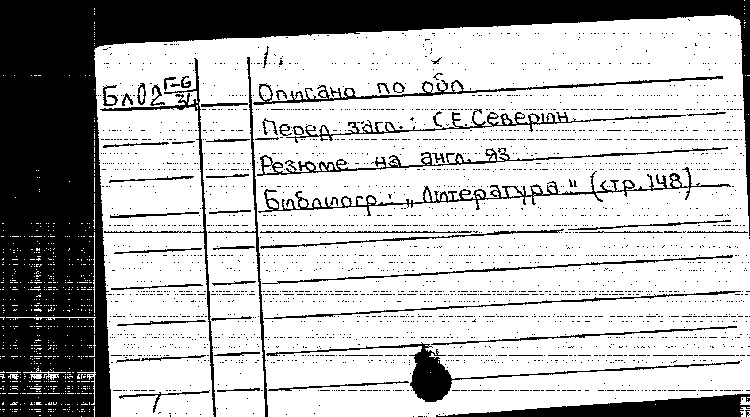 БлО2 Г-6
3/4
Описано по обл
Перед загл.: С.Е.Северин.
Резюме на англ. яз
Библиогр.: „Литература" (стр.148).